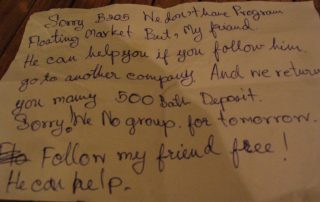 Sorry Bros We don't have Program
Floating Market But, My friend.
He can help you if you follow him.
go to another company. And we return
you many 500 Bath Deposit.
Sorry! We No group. for tomorrow.
Follow my friend free!
He can help.